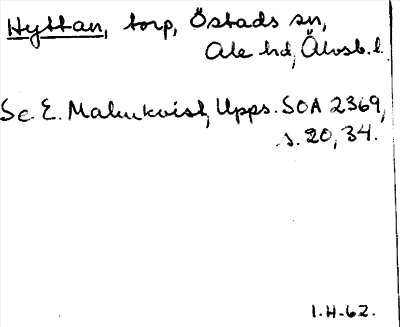 Hyttan, torp, Östads sn,
Ale hd, Älvsb. l.
Se E. Malmkvist, Upps. SOA 2369,
s. 20, 34.
1.H.62.